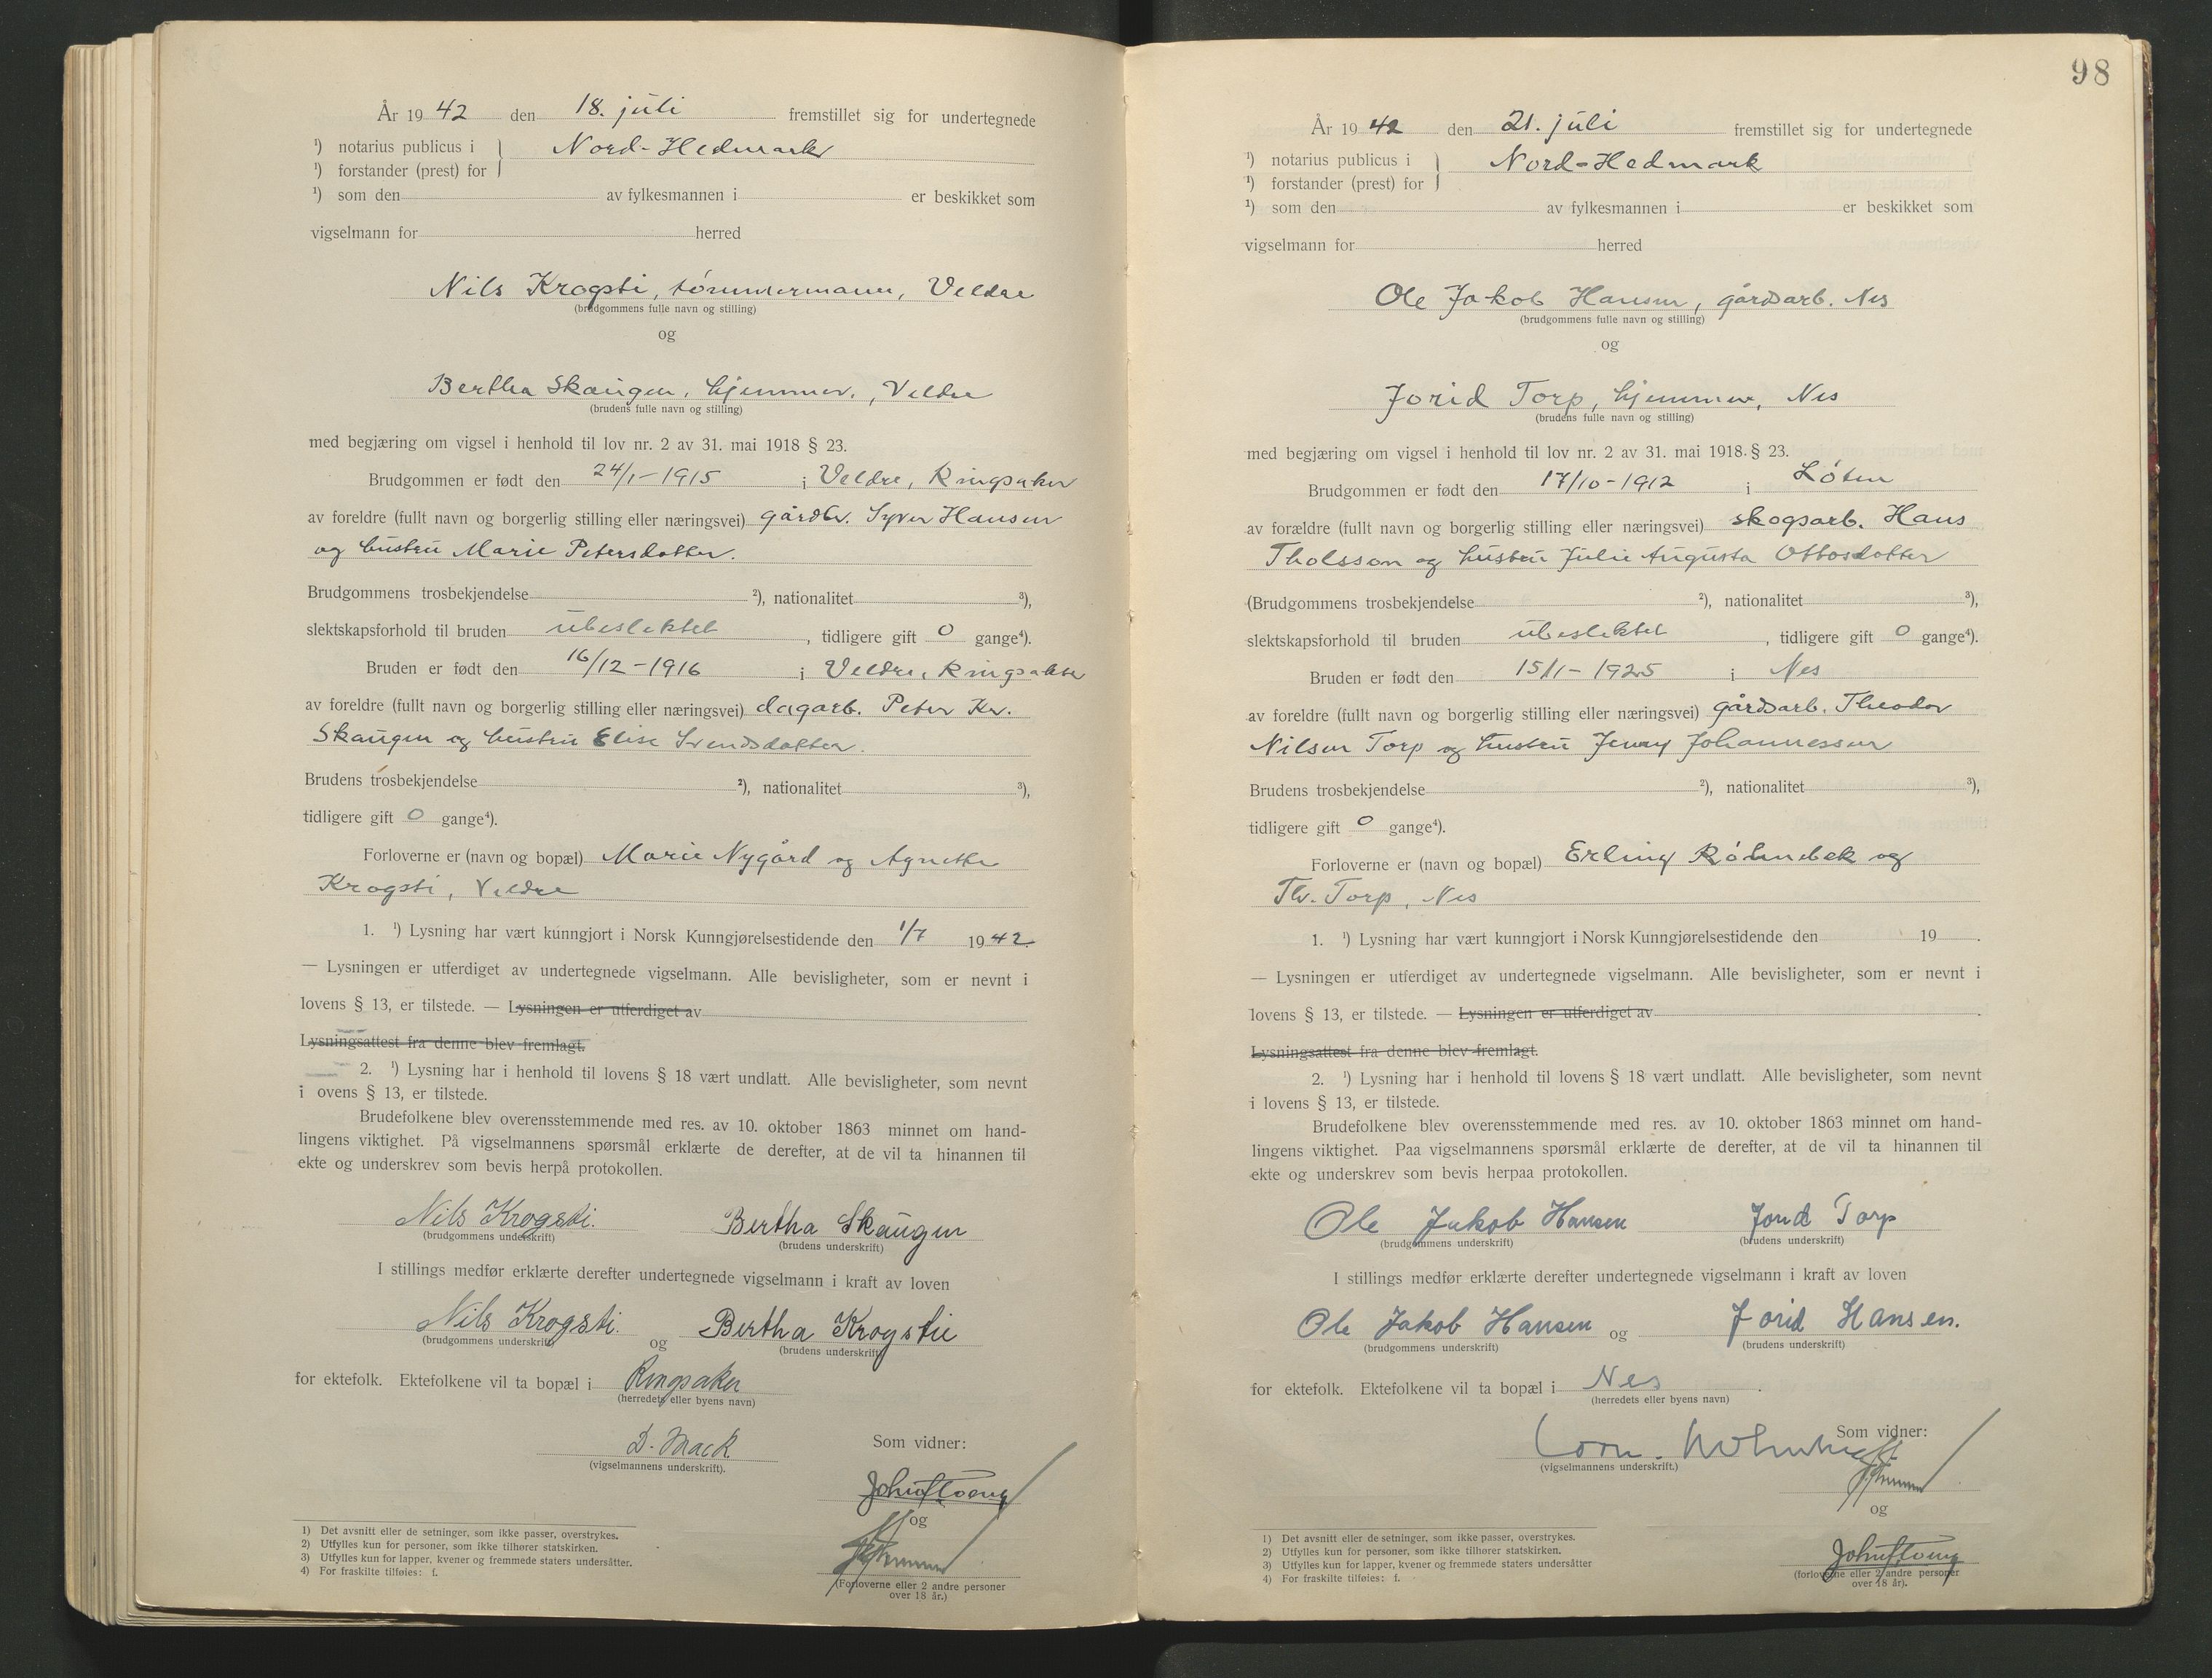 År 19 42 den 18. juli fremstillet sig for undertegnede
¹) notarius publicus i } Nord-Hedmark
¹) forstander (prest) for
¹) som den av fylkesmannen i er beskikket som
vigselmann for herred
Nils Krogsti, tømmermann, Veldre
(brudgommens fulle navn og stilling)
og
Bertha Skaugen, hjemmev., Veldre
(brudens fulle navn og stilling)
med begjæring om vigsel i henhold til lov nr. 2 av 31. mai 1918 § 23.
Brudgommen er født den 24/1-1915 i Veldre, Ringsaker
av foreldre (fullt navn og borgerlig stilling eller næringsvei) gårdbr. Syver Hansen
og hustru Marie Petersdotter.
Brudgommens trosbekjendelse ²), nationalitet ³),
slektskapsforhold til bruden ubeslektet, tidligere gift 0 gange⁴).
Bruden er født den 16/12-1916 i Veldre, Ringsaker
av foreldre (fullt navn og borgerlig stilling eller næringsvei) dagarb. Peter Kr.
Skaugen og hustru Elise Svendsdotter.
Brudens trosbekjendelse ²), nationalitet ³),
tidligere gift 0 gange⁴).
Forloverne er (navn og bopæl) Marie Nygård og Agnethe
Krogsti, Veldre
1. ¹) Lysning har vært kunngjort i Norsk Kunngjørelsestidende den 1/7 1942.
— Lysningen er utferdiget av undertegnede vigselmann. Alle bevisligheter, som er nevnt i
lovens § 13, er tilstede. — Lysningen er utferdiget av
Lysningsattest fra denne blev fremlagt.
2. ¹) Lysning har i henhold til lovens § 18 vært undlatt. Alle bevisligheter, som nevnt
i ovens § 13, er tilstede.
Brudefolkene blev overensstemmende med res. av 10. oktober 1863 minnet om hand-
lingens viktighet. På vigselmannens spørsmål erklærte de derefter, at de vil ta hinannen til
ekte og underskrev som bevis herpå protokollen.
Nils Krogsti. Bertha Skaugen
(brudgommens underskrift) (brudens underskrift)
I stillings medfør erklærte derefter undertegnede vigselmann i kraft av loven
Nils Krogsti. og Bertha Krogstie
(brudgommens underskrift) (brudens underskrift)
for ektefolk. Ektefolkene vil ta bopæl i Ringsaker
(herredets eller byens navn)
D. Mack
(vigselmannens underskrift).
Som vidner:
og
(Forloverne eller 2 andre personer
over 18 år.)
1) Det avsnitt eller de setninger, som ikke passer, overstrykes.
2) Utfylles kun for personer, som ikke tilhører statskirken.
3) Utfylles kun for lapper, kvener og fremmede staters undersåtter.
4) For fraskilte tilføies: f.
98
År 19 42 den 21. juli fremstillet sig for undertegnede
¹) notarius publicus i } Nord-Hedmark
¹) forstander (prest) for
¹) som den av fylkesmannen i er beskikket som
vigselmann for herred
Ole Jakob Hansen, gårdsarb. Nes
(brudgommens fulle navn og stilling)
og
Jorid Torp, hjemmev, Nes
(brudens fulle navn og stilling)
med begjæring om vigsel i henhold til lov nr. 2 av 31. mai 1918. § 23.
Brudgommen er født den 17/10-1912 i Løten
av forældre (fullt navn og borgerlig stilling eller næringsvei) skogsarb. Hans
Tholsson og hustru Julie Augusta Ottosdotter
(Brudgommens trosbekjendelse ²), nationalitet ³),
slektskapsforhold til bruden ubeslektet, tidligere gift 0 gange⁴).
Bruden er født den 15/1-1925 i Nes
av foreldre (fullt navn og borgerlig stilling eller næringsvei) gårdsarb. Theodor
Nilsen Torp og hustru Jenny Johannessen
Brudens trosbekjendelse ²), nationalitet ³),
tidligere gift 0 gange⁴).
Forloverne er (navn og bopæl) Erling og
Th. Torp, Nes
1. ¹) Lysning har vært kunngjort i Norsk Kunngjørelsestidende den 19 .
— Lysningen er utferdiget av undertegnede vigselmann. Alle bevisligheter, som er nevnt i
lovens § 13, er tilstede. — Lysningen er utferdiget av .
Lysningsattest fra denne blev fremlagt.
2. ¹) Lysning har i henhold til lovens § 18 vært undlatt. Alle bevisligheter, som nevnt
i lovens § 13, er tilstede.
Brudefolkene blev overensstemmende med res. av 10. oktober 1863 minnet om hand-
lingens viktighet. Paa vigselmannens spørsmål erklærte de derefter, at de vil ta hinannen til
ekte og underskrev som bevis herpaa protokollen.
Ole Jakob Hansen Jorid Torp
(brudgommens underskrift) (brudens underskrift)
I stillings medfør erklærte derefter undertegnede vigselmann i kraft av loven
Ole Jakob Hansen og Jorid Hansen.
(brudgommens underskrift) (brudens underskrift)
for ektefolk. Ektefolkene vil ta bopæl i Nes .
(herredets eller byens navn)
(vigselmannens underskrift.)
Som vidner:
og
(forloverne eller 2 andre personer
over 18 år).
1) Det avsnitt eller de setninger, som ikke passer, overstrykes.
2) Utfylles kun for personer, som ikke tilhører statskirken.
3) Utfylles kun for lapper, kvener og fremmede staters undersåtter
4) For fraskilte tilføies: f.